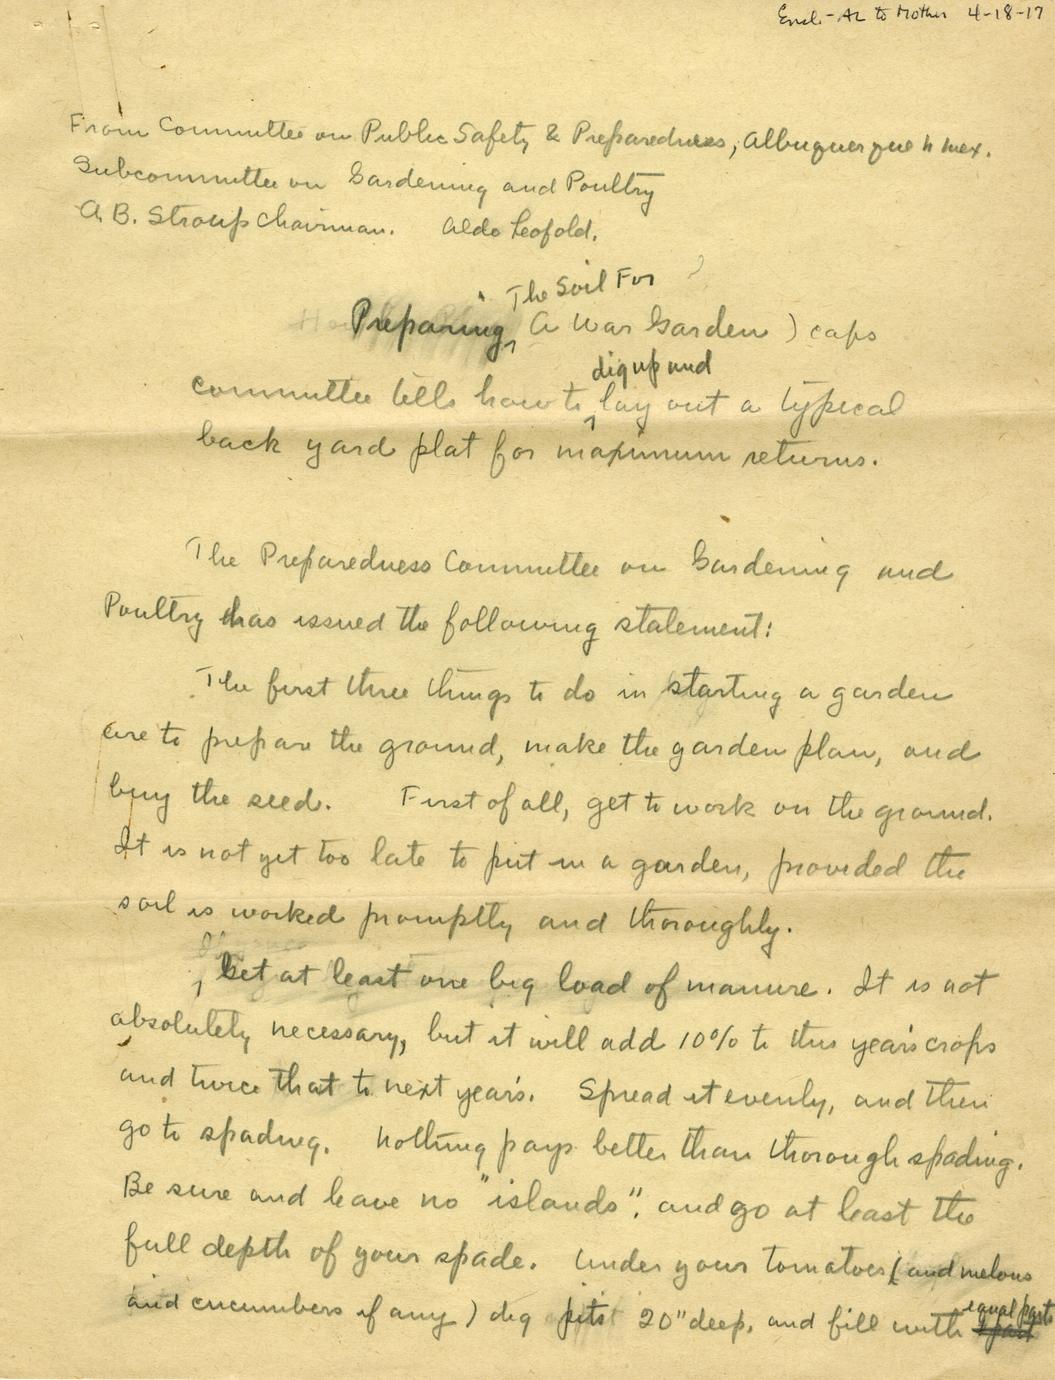 Encl.- AL to Mother 4-18-17
From Committee on Public Safety & Preparedness, Albuquerque N Mex.
Subcommittee on Gardening and Poultry
A. B. Stroup Chairman. Aldo Leopold.
The Soil For
Preparing A War Garden ) caps
dig up and
committee tells how to lay out a typical
back yard plat for maximum returns.
The Preparedness Committee on Gardening and
Poultry has issued the following statement:
The first three things to do in starting a garden
are to prepare the ground, make the garden plan, and
buy the seed. First of all, get to work on the ground.
It is not yet too late to put in a garden, provided the
soil is worked promptly and thoroughly.
Get at least one big load of manure. It is not
absolutely necessary, but it will add 10% to this year's crops
and twice that to next year's. Spread it evenly, and then
go to spading. Nothing pays better than thorough spading.
Be sure and leave no "islands", and go at least the
full depth of your spade. Under your tomatoes (and melons
equal parts
and cucumbers if any) dig pits 20" deep, and fill with